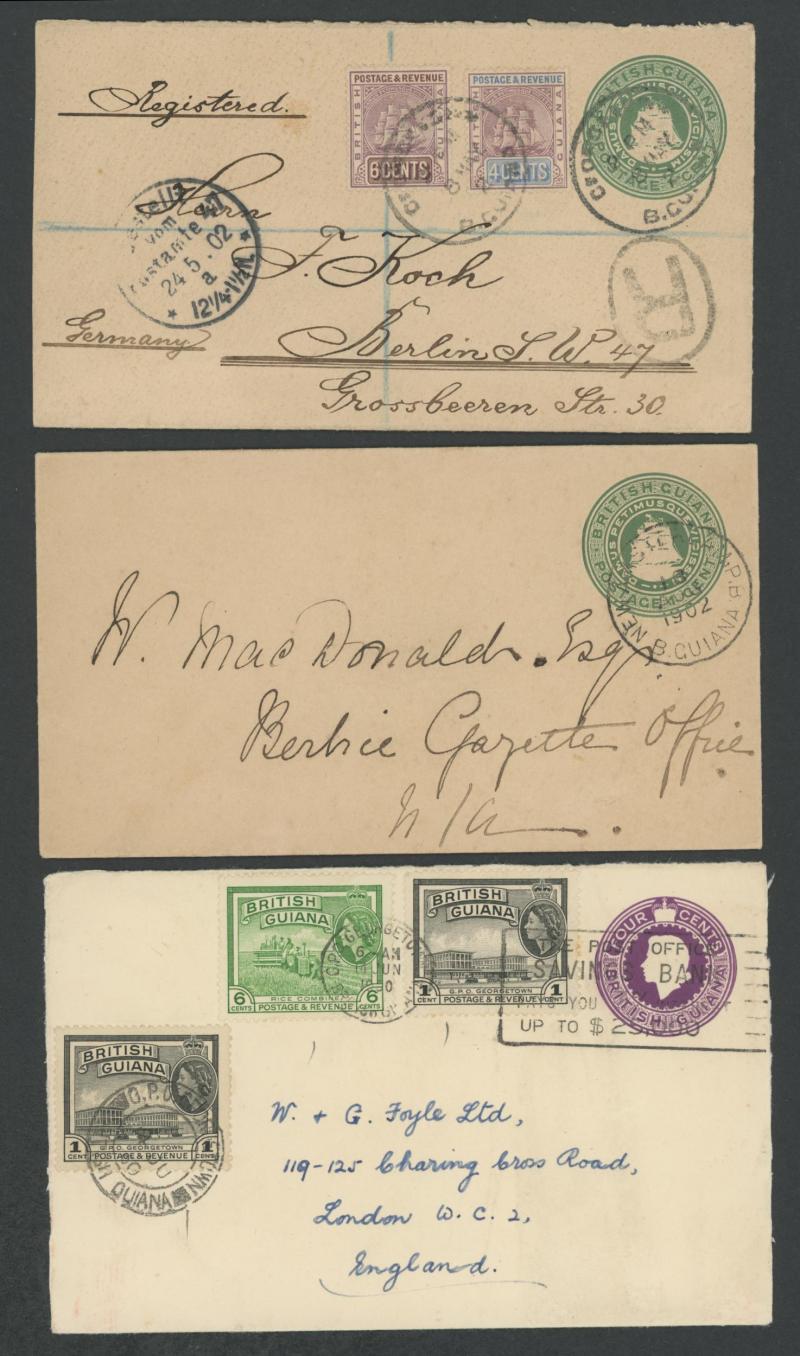 Registered.
POSTAGE & REVENUE
BRITISH GUIANA
6 CENTS
POSTAGE & REVENUE
BRITISH GUIANA
4 CENTS
BRITISH GUIANA
DAMUS PETIMUSQUE VICISSIM
POSTAGE 1 CENT
B. GUIANA
vom
24 5. 02
a
* 12¼-1½N. *
Herrn
F. Koch
R
Germany
Berlin S. W. 47
Grossbeeren Str. 30.
BRITISH GUIANA
DAMUS PETIMUSQUE VICISSIM
POSTAGE 1 CENT
1902
NEW
B. GUIANA
W. MacDonald. Esq.
Berbice Gazette Office
N/A.
BRITISH GUIANA
6 CENTS
RICE COMBINE
POSTAGE & REVENUE
BRITISH GUIANA
1 CENT
G.P.O. GEORGETOWN
POSTAGE & REVENUE
FOUR CENTS
BRITISH GUIANA
THE POST OFFICE
SAVINGS BANK
YOU
UP TO $
BRITISH GUIANA
1 CENT
G.P.O. GEORGETOWN
POSTAGE & REVENUE
GUIANA
W. + G. Foyle Ltd,
119-125 Charing Cross Road,
London W. C. 2,
England.